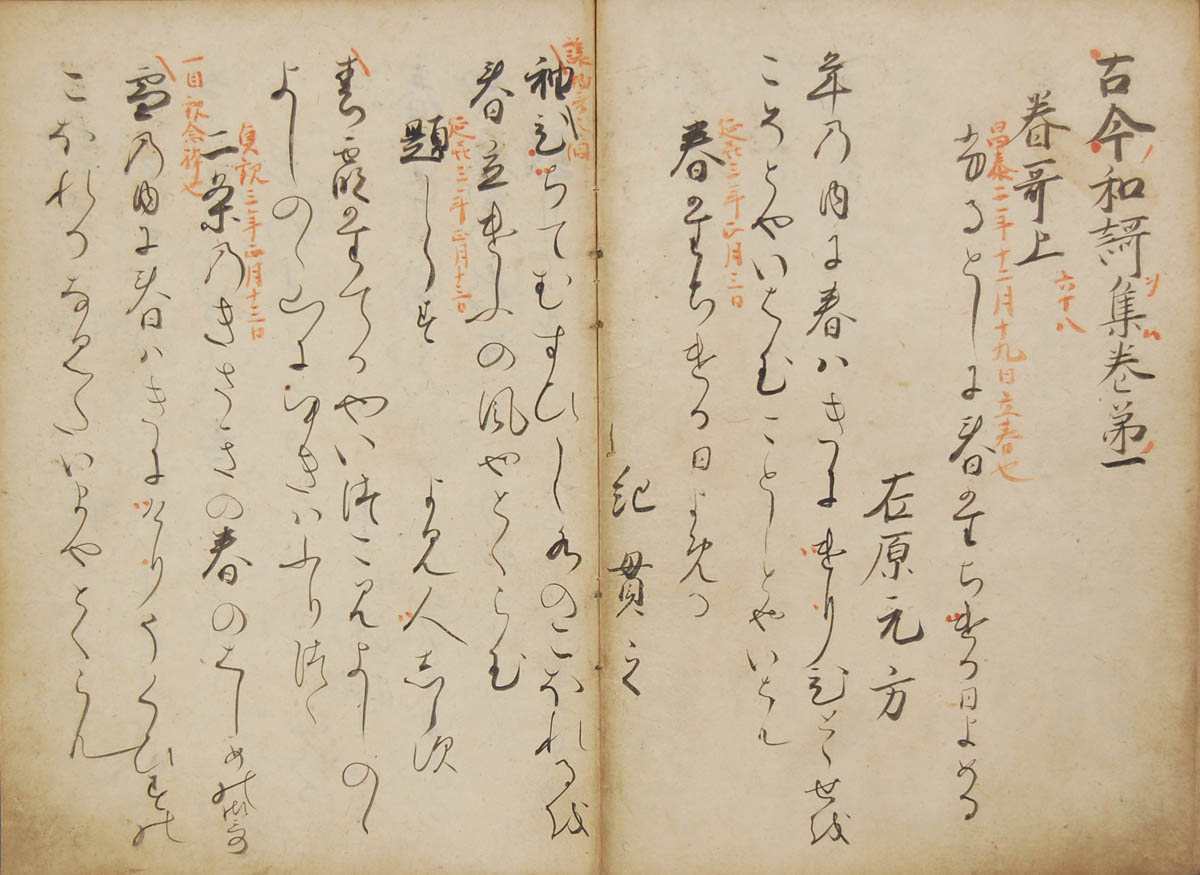 古今和謌集巻第一
春哥上
六十八
昌泰二年十二月十九日立春也
ふるとしに春たちける日よめる
在原元方
年の内に春はきにけりひとゝせを
こそとやいはむことしとやいはん
延喜三年正月三日
春たちける日よめる
紀貫之
袖ひちてむすひし水のこほれるを
春立けふの風やとくらむ
延喜三年正月十三日
題しらす
よみ人しらす
春霞たてるやいつこみよしのゝ
よしのゝ山にゆきはふりつゝ
貞観三年正月十三日
二条のきさきの春のはしめの御哥
雪の内に春はきにけりうくひすの
こほれるなみたいまやとくらん